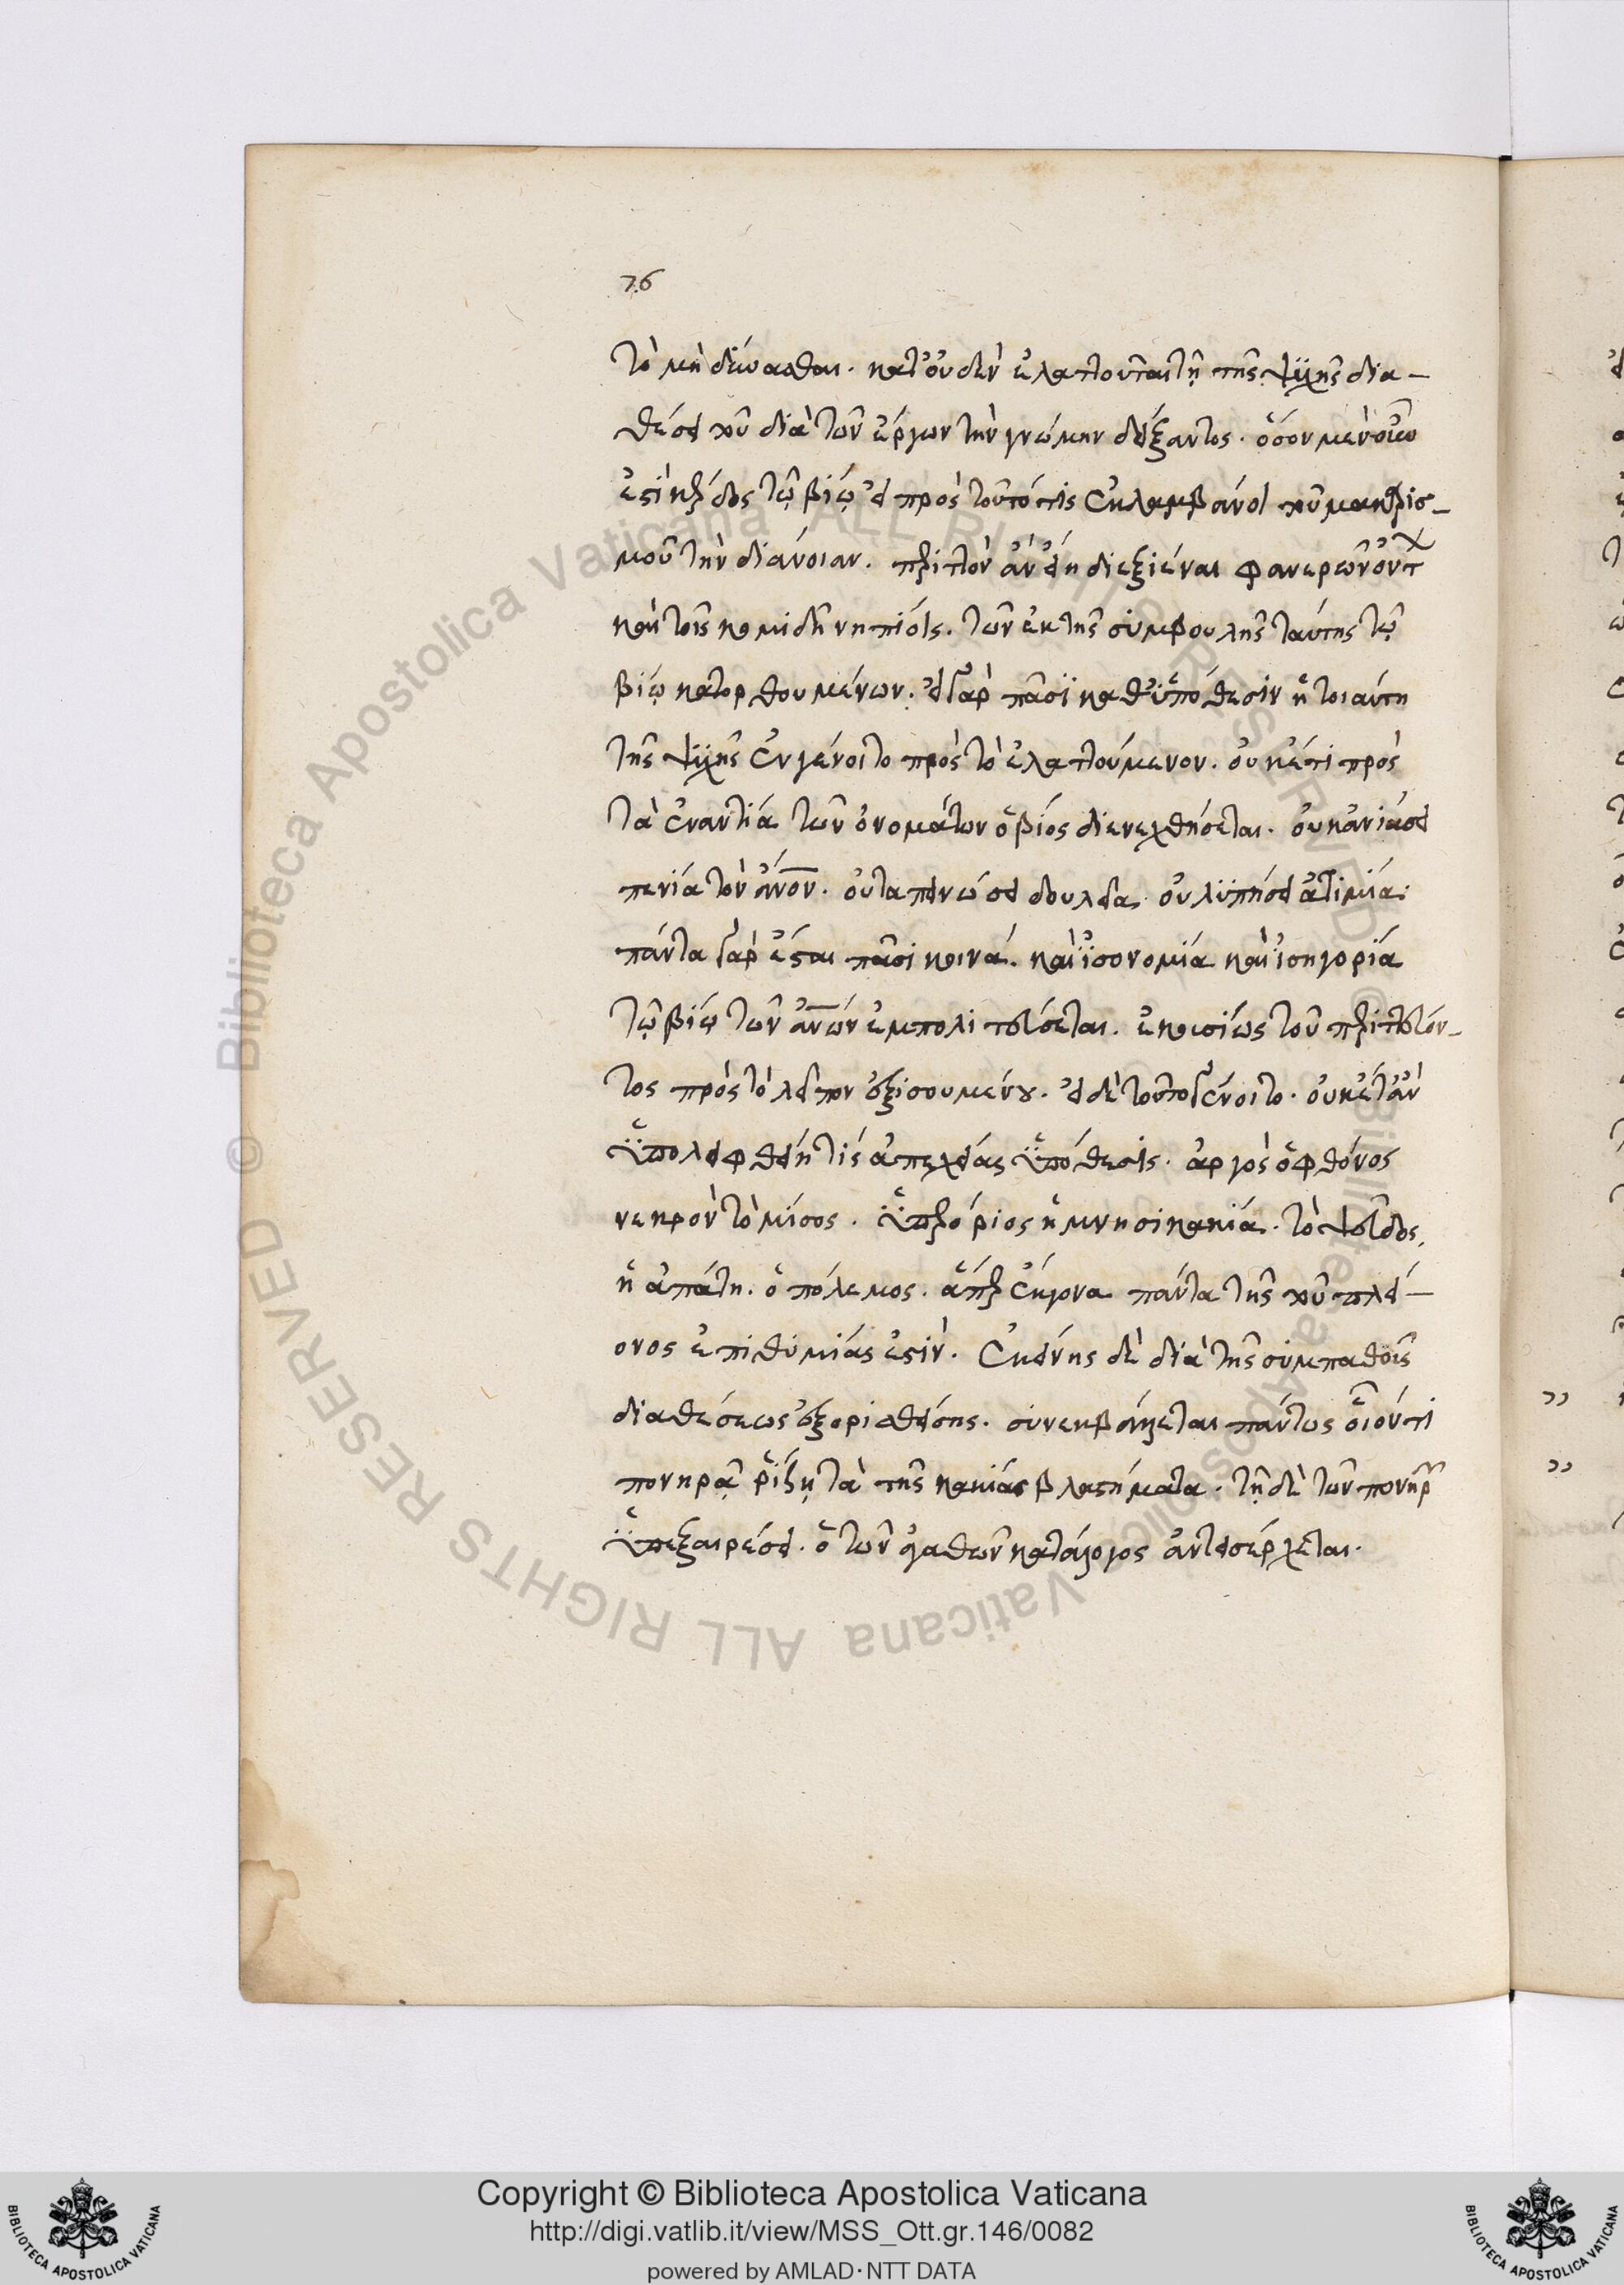 76
τὸ μὴ δύνασθαι. κατ' οὐδὲν ἐλαττοῦται τῆ τῆς ψυχῆς δια-
θέσει τοῦ διὰ τῶν ἔργων τὴν γνώμην δείξαντος. ὅσον μὲν οὖν
ἐστὶ κέρδος τῷ βίῳ εἰ πρὸς τοῦτό τις ἐκλαμβάνοι τοῦ μακαρισ-
μοῦ τὴν διάνοιαν. περιττὸν ἂν εἴη διεξιέναι φανερῶν ὄντ
καὶ τοῖς κομιδῆ νηπίοις. τῶν ἐκ τῆς συμβουλῆς ταύτης τῷ
βίῳ κατορθουμένων. εἰ γὰρ πᾶσϊ καθ' ὑπόθεσιν ἡ τοιαύτη
τῆς ψυχῆς ἐνγένοιτο πρὸς τὸ ἐλαττούμενον. οὐκέτι πρὸς
τὰ ἐναντία τῶν ὀνομάτων ὁ βίος διενεχθήσεται. οὐκ ἀνιάσει
πενία τὸν ἄνον. οὐ ταπεινώσει δουλεία. οὐ λϋπήσει ἀτιμία.
πάντα γὰρ ἔσται πᾶσι κοινά. καὶ ἰσονομία καὶ ἰσηγορία
τῷ βίῳ τῶν ἀνων ἐμπολιτεύσεται. ἑκουσίως τοῦ περιττεύον-
τος πρὸς τὸ λεῖπον ἐξισουμένου. εἰ δὲ τοῦτο γένοιτο. οὐκέτ' ἂν
ϋπολειφθείη τίς ἀπεχθείας ϋπόθεσις. ἀργὸς ὁ φθόνος
νεκρὸν τὸ μίσος. ϋπερόριος ἡ μνησικακία. τὸ ψεῦδος,
ἡ ἀπάτη. ὁ πόλεμος. ἅπερ ἔκγονα πάντα τῆς τοῦ πλεί-
ονος ἐπιθυμίας ἐστίν. ἐκείνης δὲ διὰ τῆς συμπαθοῦς
διαθέσεως ἐξορισθείσης. συνεκβάλλεται πάντως οἷόν τι
πονηρᾷ ῥίζῃ τὰ τῆς κακίας βλαστήματα. τῇ δὲ τῶν πονηρ
ϋπεξαιρέσει. ὁ τῶν ἀγαθῶν κατάλογος ἀντεισέρχεται.
Copyright © Biblioteca Apostolica Vaticana
http://digi.vatlib.it/view/MSS_Ott.gr.146/0082
powered by AMLAD·NTT DATA